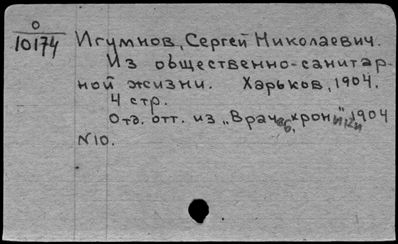 0
10174
Игумнов, Сергей Николаевич.
Из общественно-санитар-
ной жизни. Харьков, 1904.
4 стр.
Отд. отт. из „Врачеб. хрони[ки]" 1904
N10.